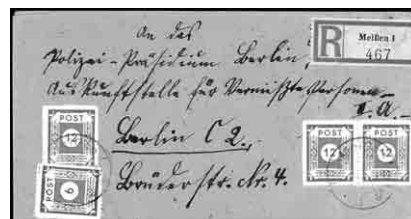 An das
Polizei-Präsidium Berlin,
Auskunftstelle für Vermißte Personen
Berlin C 2.,
Bruderstr. Nr. 4.
R
Meißen 1
467
POST
12
POST
6
POST
12
POST
12